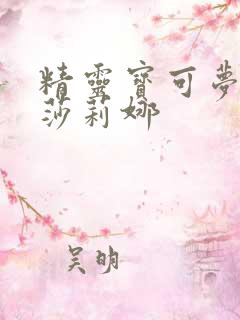 精靈寶可夢
莎莉娜
吴明